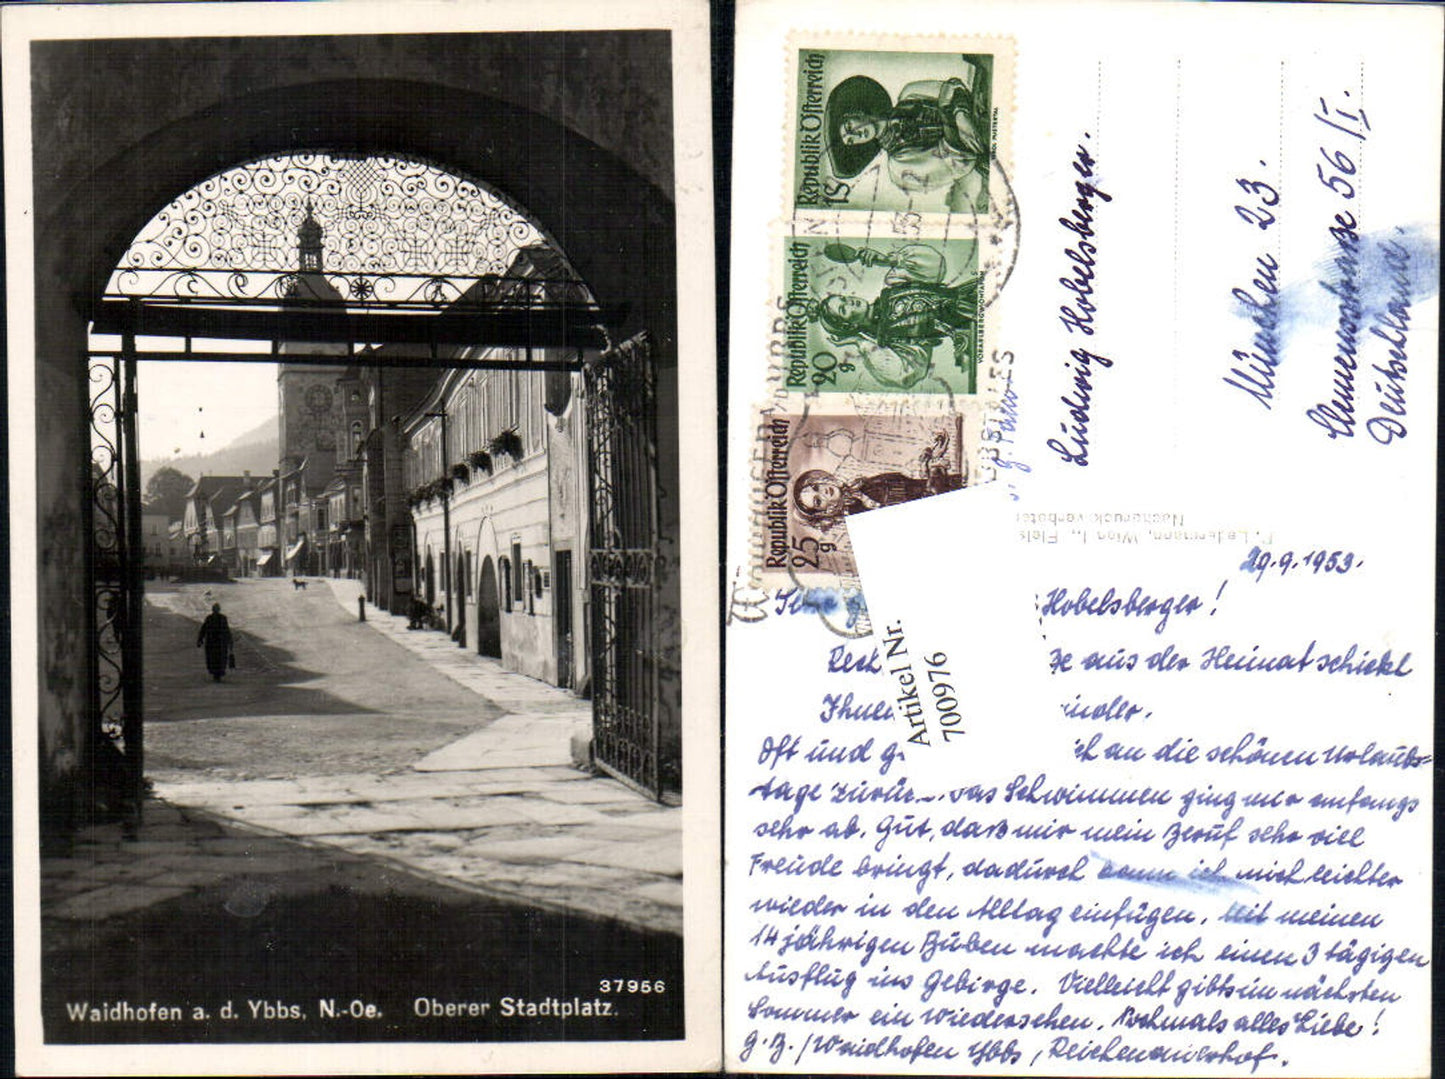 37956
Waidhofen a. d. Ybbs, N.-Oe. Oberer Stadtplatz.
Republik Österreich
1S
Republik Österreich
20 g
Republik Österreich
25 g
Ludwig Hobelsberger.
München 23.
Clemensstrasse 56/I.
Deutschland.
Nachdruck verboten
Artikel Nr.
700976
29.9.1953.
Hobelsberger!
aus der Heimat schickt
Oft und ich an die schönen Urlaubs=
tage zurück. Das Schwimmen ging mir anfangs
sehr ab. Gut, dass mir mein Beruf sehr viel
Freude bringt, dadurch kann ich mich leichter
wieder in den Alltag einfügen. Mit meinen
14 jährigen Buben machte ich einen 3 tägigen
Ausflug ins Gebirge. Vielleicht gibts im nächsten
Sommer ein Wiedersehen. Nochmals alles Liebe!
g. Z. / Waidhofen Ybbs, Reichenauerhof.